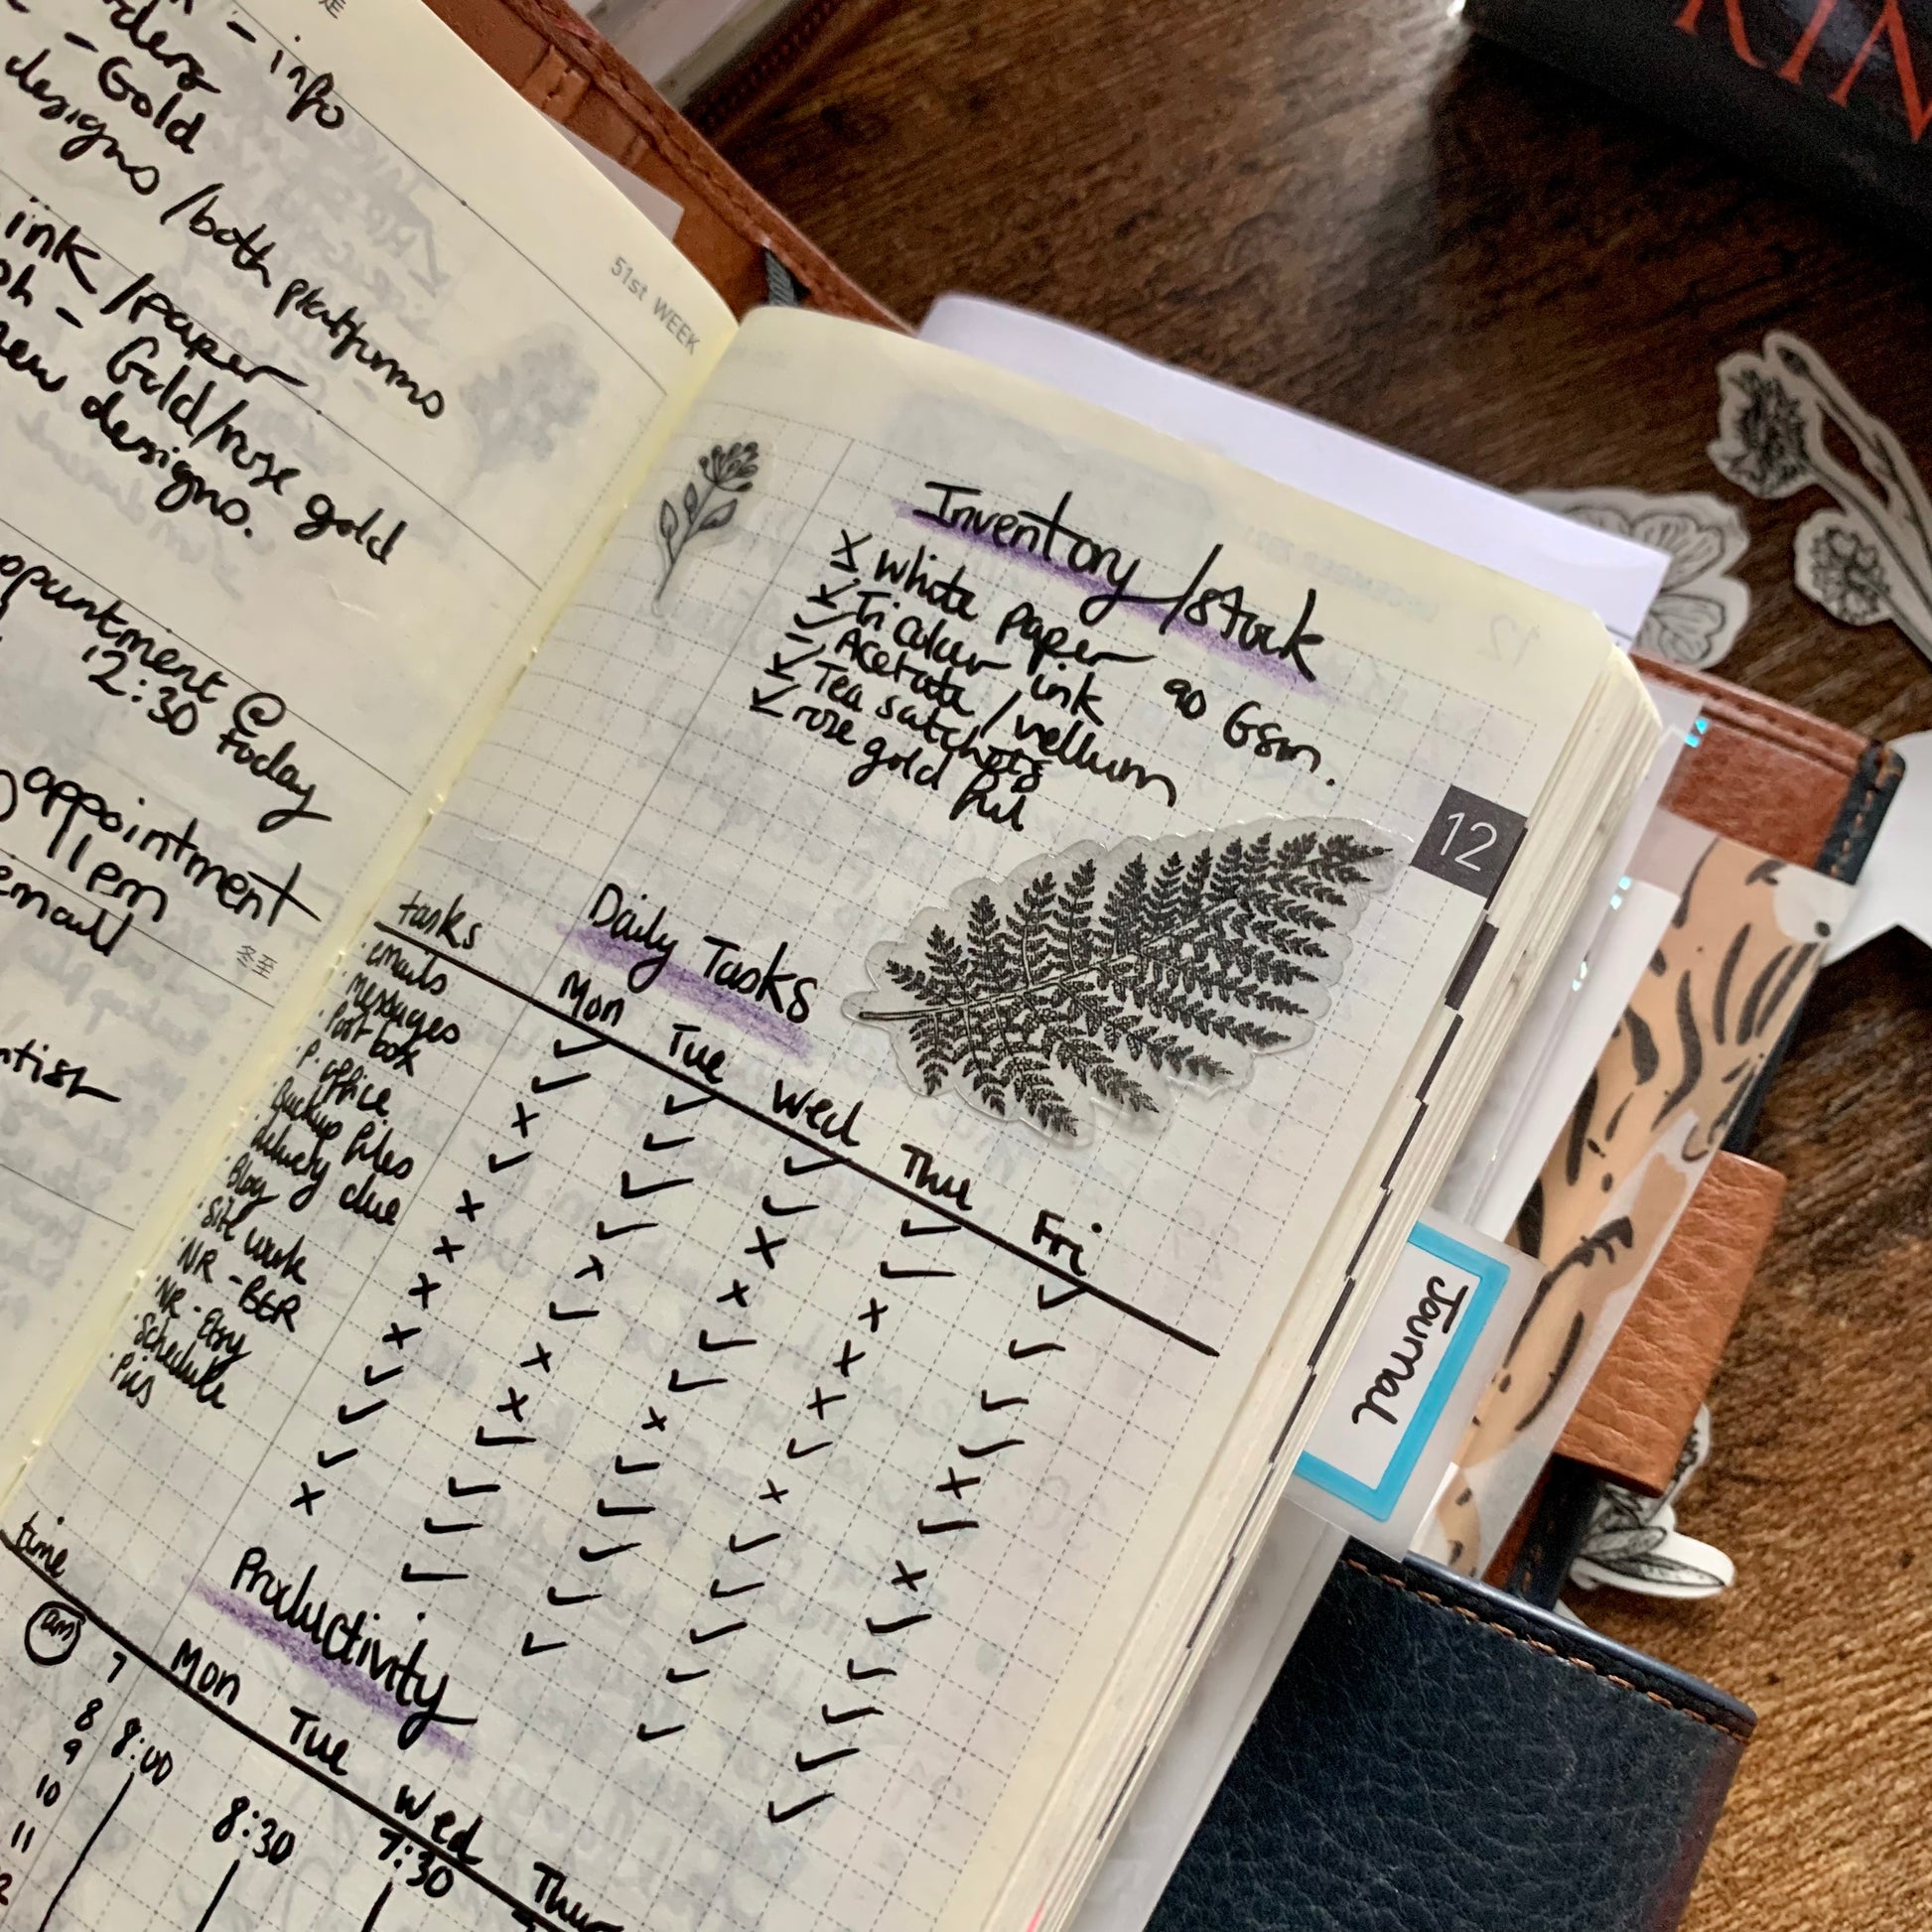 - info
- Gold
designs / both platforms
ink / paper
- Gold/rose gold
new designs.
@
12:30 today
appointment
email
冬至
51st WEEK
Inventory / stock
x white paper 90 Gsm.
✓ Tri colour ink
✓ Acetate / vellum
- Tea satchets
✓ rose gold foil
✓
12
Daily Tasks
tasks Mon Tue Wed Thu Fri
· emails ✓ ✓ ✓ ✓ ✓
· messages ✓ ✓ ✓ ✓ ✓
· Post box x ✓ x x ✓
· P. office ✓ ✓ x x ✓
· Backup files x x ✓ x x
· delivery due x ✓ ✓ ✓ ✓
· Blog x x x x x
· site work x x ✓ ✓ ✓
· NR - BER ✓ ✓ ✓ ✓ ✓
· NR - Etsy ✓ ✓ ✓ ✓ ✓
· schedule ✓ ✓ ✓ ✓ ✓
· Pins x ✓ ✓ ✓ ✓
Productivity
time Mon Tue Wed Thur
am 7
8 8:00 8:30 7:30
9
10
11
Journal